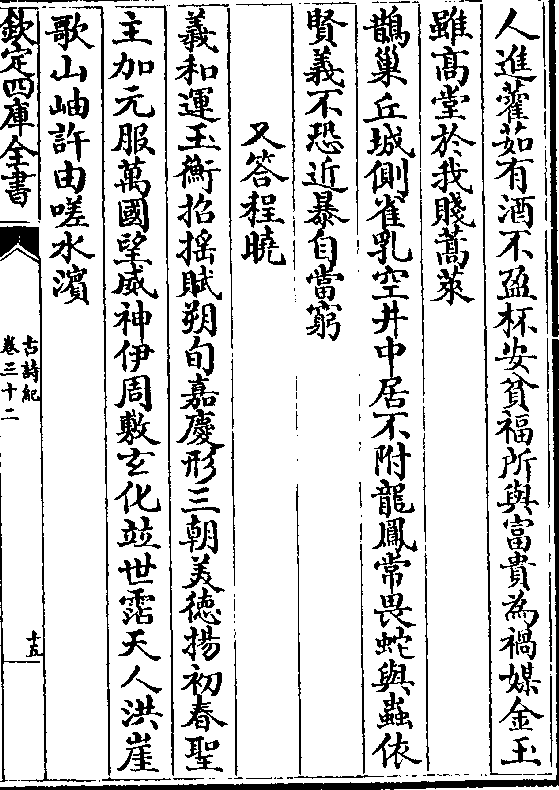 人進藿茹有酒不盈杯安貧福所與富貴為禍媒金玉
雖高堂於我賤蒿萊
鵲巢丘城側雀乳空井中居不附龍鳳常畏蛇與蟲依
賢義不恐近暴自當窮
又答程曉
義和運玉衡招搖賦朔旬嘉慶形三朝美德揚初春聖
主加元服萬國望威神伊周敷玄化竝世霑天人洪崖
歌山岫許由嗟水濱
欽定四庫全書
古詩紀
卷三十二
十五